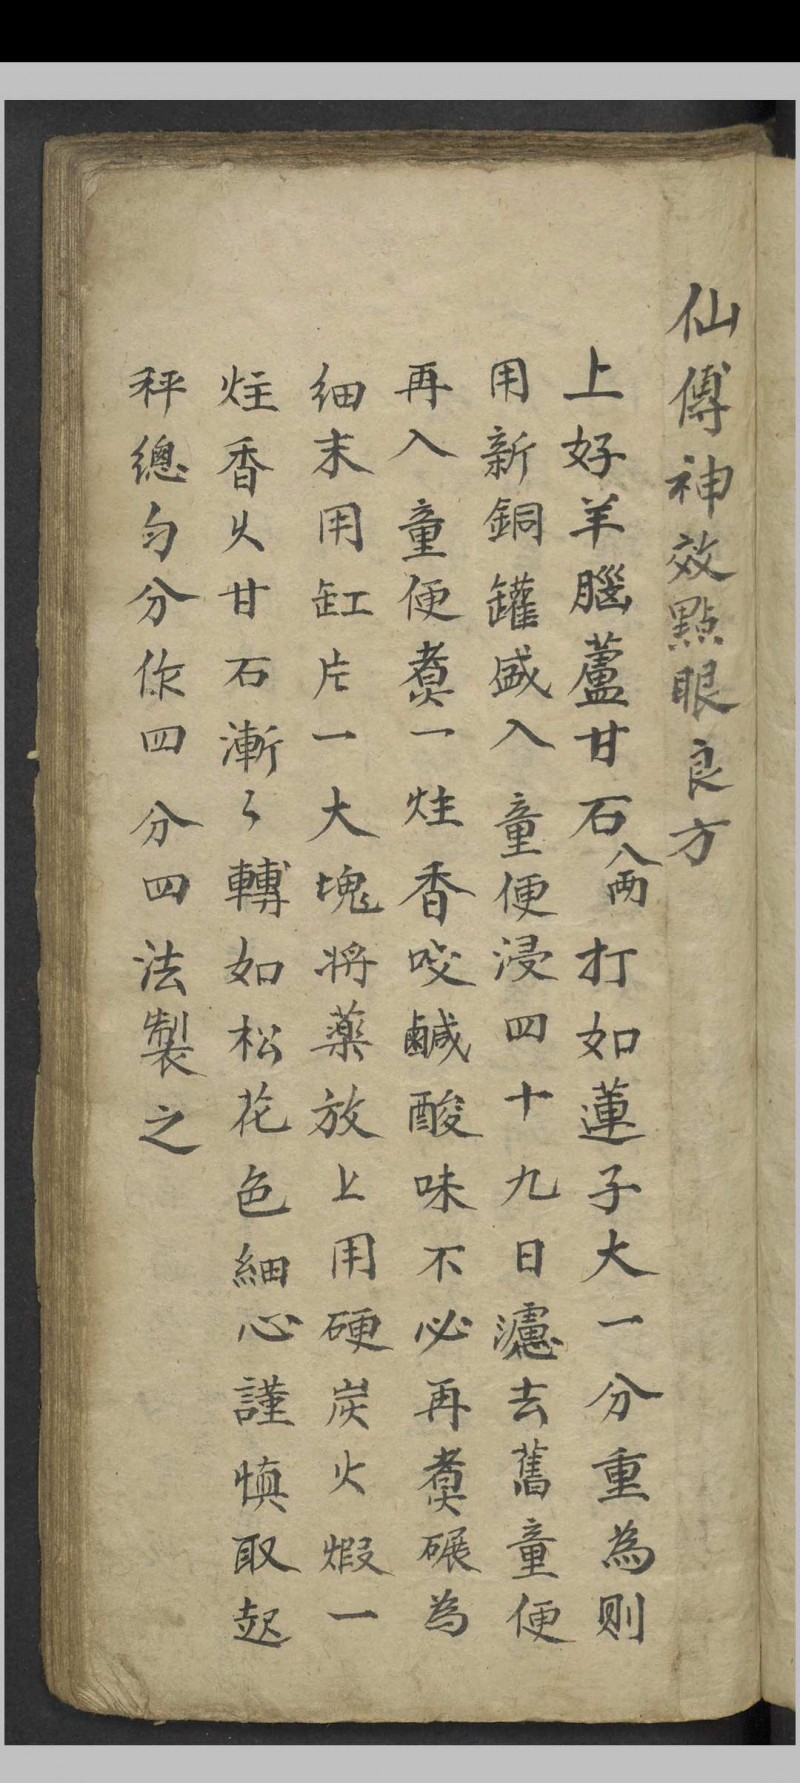 仙傳神效點眼良方
上好羊腦蘆甘石八兩打如蓮子大一分重為則
用新銅罐盛入童便浸四十九日濾去舊童便
再入童便煑一炷香咬鹹酸味不必再煑碾為
細末用缸片一大塊將藥放上用硬炭火煅一
炷香久甘石漸々轉如松花色細心謹慎取起
秤總勻分作四分四法製之